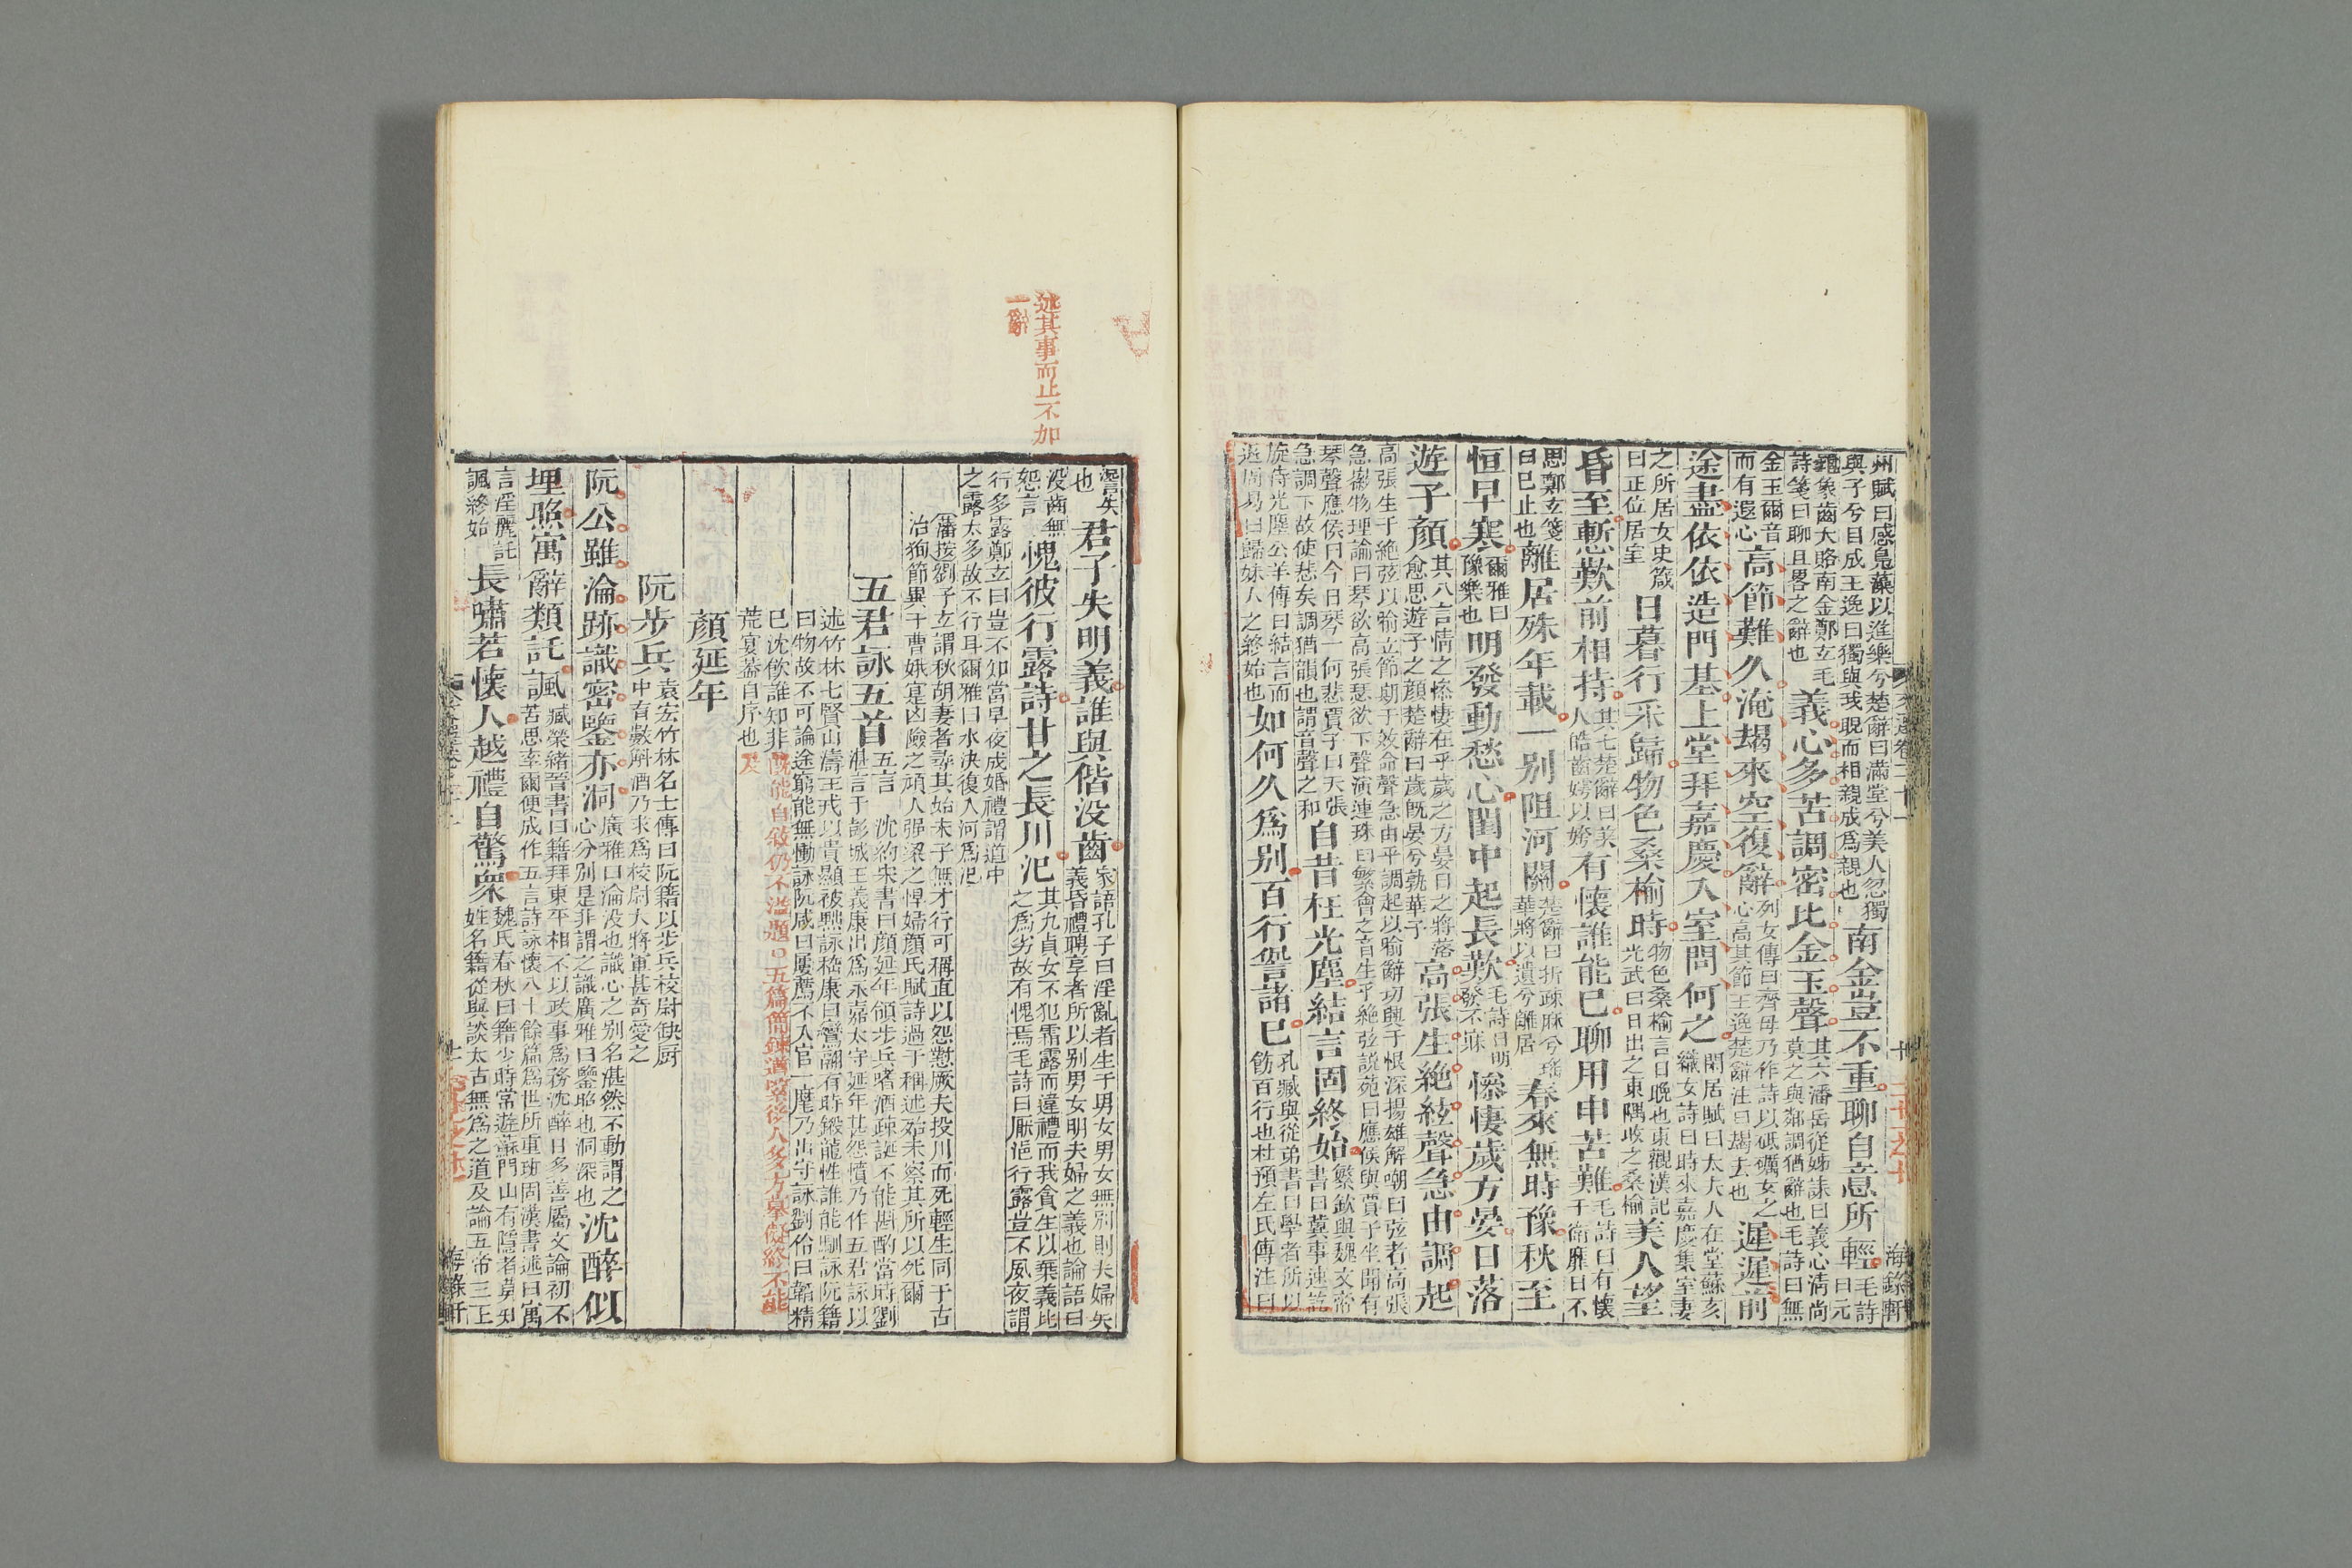 文選卷二十一 十 海錄軒
二十一之十
州賦曰感鳧藻以進樂兮楚辭曰滿堂兮美人忽獨
與子兮目成王逸曰獨與我睨而相親成爲親也
南金豈不重聊自意所輕
毛詩曰元
龜象齒大賂南金鄭玄毛
詩箋曰聊且畧之辭也
義心多苦調密比金玉聲
其六潘岳從姊誄曰義心清尚
莫之與鄰調猶辭也毛詩曰無
金玉爾音
而有遐心
高節難久淹朅來空復辭
列女傳曰齊母乃作詩以砥礪女之
心高其節王逸楚辭注曰朅去也
遲遲前
途盡依依造門基上堂拜嘉慶入室問何之
閑居賦曰太夫人在堂蘇亥
織女詩曰時來嘉慶集室妻
之所居女史箴
曰正位居室
日暮行采歸物色桑榆時
物色桑榆言日晚也東觀漢記
光武曰日出之東隅收之桑榆
美人望
昏至慙歎前相持
其七楚辭曰美
人皓齒嫮以姱
有懷誰能已聊用申苦難
毛詩曰有懷
于衛靡日不
思鄭玄箋
曰已止也
離居殊年載一别阻河關
楚辭曰折疎麻兮瑤
華將以遺兮離居
春來無時豫秋至
恒早寒
爾雅曰
豫樂也
明發動愁心閨中起長歎
毛詩曰明
發不寐
慘悽歲方晏日落
遊子顏
其八言情之慘悽在乎歲之方晏日之將落
愈思遊子之顏楚辭曰歲旣晏兮孰華予
高張生絶絃聲急由調起
高張生于絶弦以喻立節期于效命聲急由乎調起以喻辭切興于恨深揚雄解嘲曰弦者高張
急徽物理論曰琴欲高張瑟欲下聲演連珠曰繁會之音生乎絶弦說苑曰應侯與賈子坐聞有
琴聲應侯曰今日琴一何悲賈子曰夫張
急調下故使悲矣調猶韻也謂音聲之和
自昔枉光塵結言固終始
繁欽與魏文帝
書曰冀事速訖
旋侍光塵公羊傳曰結言而
退周易曰歸妹人之終始也
如何久爲别百行諐諸已
孔臧與從弟書曰學者所以
飭百行也杜預左氏傳注曰
述其事而止不加
一辭
諐失
也
君子失明義誰與偕没齒
家語孔子曰淫亂者生于男女男女無别則夫婦失
義昏禮聘享者所以别男女明夫婦之義也論語曰
没齒無
怨言
愧彼行露詩甘之長川汜
其九貞女不犯霜露而違禮而我貪生以棄義比
之爲劣故有愧焉毛詩曰厭浥行露豈不夙夜謂
行多露鄭玄曰豈不知當早夜成婚禮謂道中
之露太多故不行耳爾雅曰水決復入河爲汜
藩按劉子玄謂秋胡妻者尋其始末了無才行可稱直以怨懟厥夫投川而死輕生同于古
冶狥節異于曹娥寔凶險之頑人强梁之悍婦顏氏賦詩過于稱述殆未察其所以死爾
五君詠五首
五言
沈約宋書曰顏延年領步兵嗜酒疎誕不能斟酌當時劉
湛言于彭城王義康出爲永嘉太守延年甚怨憤乃作五君詠以
述竹林七賢山濤王戎以貴顯被黜詠嵇康曰鸞翮有時鎩龍性誰能馴詠阮籍
曰物故不可論途窮能無慟詠阮咸曰屢薦不入官一麾乃出守詠劉伶曰韜精
已沈飲誰知非
荒宴葢自序也
旣能自敘仍不溢題○五篇簡鍊遒緊後人多方摹儗終不能
及
顏延年
阮步兵
袁宏竹林名士傳曰阮籍以步兵校尉缺厨
中有數斛酒乃求爲校尉大將軍甚奇愛之
阮公雖淪跡識密鑒亦洞
廣雅曰淪没也識心之别名湛然不動謂之
心分别是非謂之識廣雅曰鑒昭也洞深也
沈醉似
埋照寓辭類託諷
臧榮緒晉書曰籍拜東平相不以政事爲務沈醉日多善屬文論初不
苦思率爾便成作五言詩詠懷八十餘篇爲世所重班固漢書述曰寓
言淫麗託
諷終始
長嘯若懷人越禮自驚衆
魏氏春秋曰籍少時常遊蘇門山有隱者莫知
姓名籍從與談太古無爲之道及論五帝三王
海錄軒